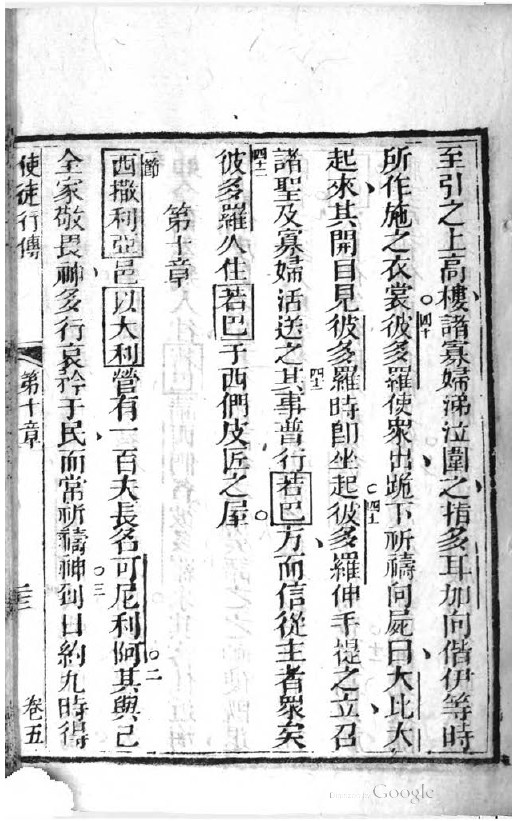 至引之上高樓諸寡婦涕泣圍之指多耳加向偕伊等時
所作施之衣裳。四十彼多羅使衆出跪下祈禱向屍曰大比大
起來其開目見彼多羅時即坐起。四一彼多羅伸手禔之立召
諸聖及寡婦活送之四二其事普行若巴方而信從主者衆矣
四三彼多羅久住若巴于西們皮匠之屋。
第十章
一節西撒利亞邑以大利營有一百夫長名可尼利阿。二其與己
全家敬畏神多行哀矜于民而常祈禱神。三到日約九時得
使徒行傳 第十章 卷五
Google